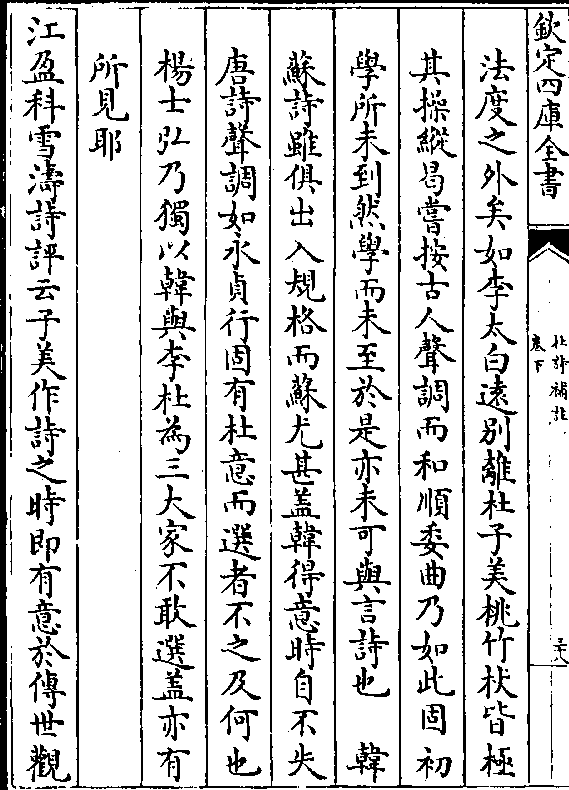 欽定四庫全書
杜詩補註
卷下
三十八
法度之外矣如李太白遠別離杜子美桃竹杖皆極
其操縱曷嘗按古人聲調而和順委曲乃如此固初
學所未到然學而未至於是亦未可與言詩也　韓
蘇詩雖俱出入規格而蘇尤甚蓋韓得意時自不失
唐詩聲調如永貞行固有杜意而選者不之及何也
楊士弘乃獨以韓與李杜為三大家不敢選蓋亦有
所見耶
江盈科雪濤詩評云子美作詩之時即有意於傳世觀